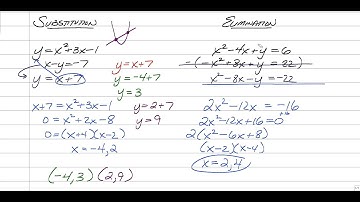 SUBSTITUTION
y=x²+3x-1
x-y=-7
y=x+7
x+7=x²+3x-1
0=x²+2x-8
0=(x+4)(x-2)
x=-4,2
(-4,3) (2,9)
y=x+7
y=-4+7
y=3
y=2+7
y=9
ELIMINATION
x²-4x+y=6
-(-x²+8x+y=22)
x²-8x-y=-22
2x²-12x=-16
2x²-12x+16=0
2(x²-6x+8)
(x-2)(x-4)
x=2,4